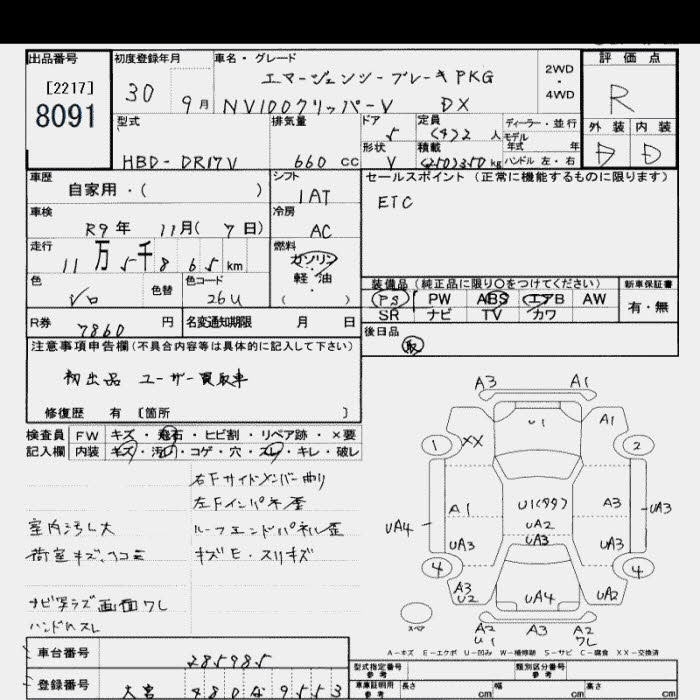 出品番号
[2217]
8091
初度登録年月
30 9月
車名・グレード
エマージェンシーブレーキPKG
NV100クリッパーV DX
2WD
4WD
評価点
R
外装 内装
D D
型式
HBD-DR17V
排気量
660 CC
ドア
5
定員
(4)2 人
形状
V
積載
(250)350 kg
ディーラー・並行
モデル年式 年
ハンドル 左・右
車歴
自家用・( )
シフト
1AT
車検
R9年 11月(7日)
冷房
AC
走行
11万5千865km
燃料
ガソリン
軽・油
( )
色
シロ
色替
色コード
26U
R券
7860 円
名変通知期限 月 日
セールスポイント(正常に機能するものに限ります)
ETC
装備品(純正品に限り○をつけてください)
PS PW ABS エアB AW
SR ナビ TV カワ
新車保証書
有・無
後日品
取
注意事項申告欄(不具合内容等は具体的に記入して下さい)
初出品 ユーザー買取車
修復歴 有〔箇所 〕
検査員記入欄
FW キズ・飛石・ヒビ割・リペア跡・×要
内装 キズ・汚れ・コゲ・穴・スレ・キレ・破レ
右Fサイドメンバー曲り
左Fインパネ歪
室内汚レ大
ルーフエンドパネル歪
荷室キズ、凹コミ
キズモ・スリキズ
ナビ写ラズ画面ワレ
ハンドルスレ
A3 A1
U1
A1
1 XX 2
A1 U1(99) A3
UA4 UA2 UA3
UA3 UA3 UA3
4 4
A3
U2 UA4 UA2
スペア
A2
U1 A3 A2
ワレ
A-キズ E-エクボ U-凹み W-補修跡 S-サビ C-腐食 XX-交換済
車台番号
285985
登録番号
大宮 480 な 9553
型式指定番号
参考
類別区分番号
参考
車庫証明用
参考
長さ cm
幅 cm
高さ cm